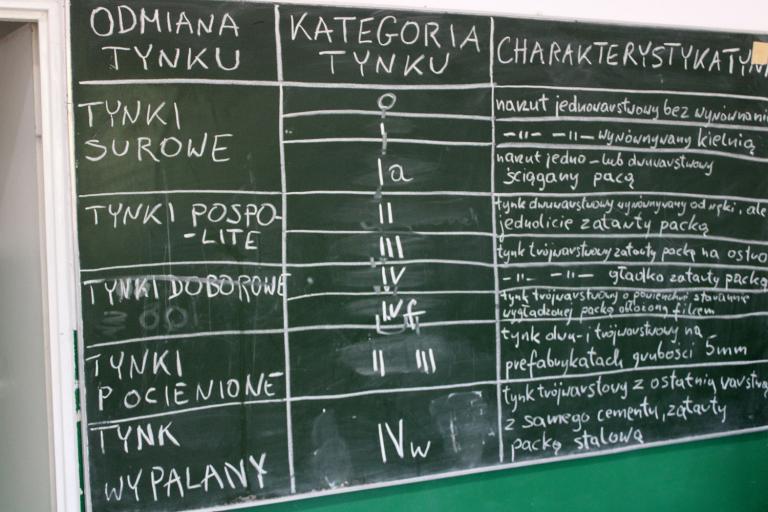 ODMIANA
TYNKU
KATEGORIA
TYNKU
CHARAKTERYSTYKA TYN
TYNKI
SUROWE
0
narzut jednowarstwowy bez wyrównani
I
-"- -"- wyrównywany kielnią
Ia
narzut jedno-lub dwuwarstwowy
ściągany pacą
TYNKI POSPO-
-LITE
II
tynk dwuwarstwowy wyrównywany od ręki, ale
jednolicie zatarty packą
III
tynk trójwarstwowy zatarty packą na ostro
TYNKI DOBOROWE
IV
-"- -"- gładko zatarty packą
IVf
tynk trójwarstwowy o powierzchni starannie
wygładzonej packą obłożoną filcem
TYNKI
POCIENIONE
II III
tynk dwu- i trójwarstwowy na
prefabrykatach grubości 5mm
TYNK
WYPALANY
IVw
tynk trójwarstowy z ostatnią warstwą
z samego cementu, zatarty
packą stalową